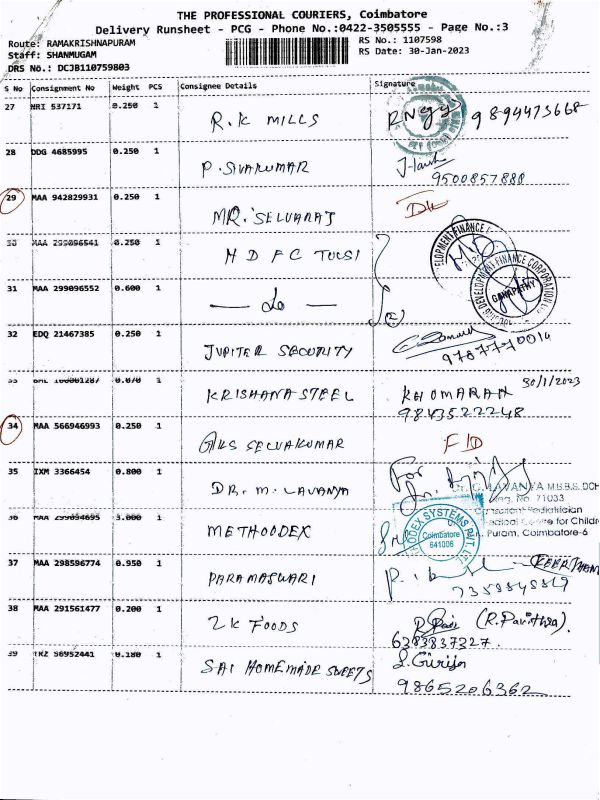 THE PROFESSIONAL COURIERS, Coimbatore
Delivery Runsheet - PCG - Phone No.:0422-3505555 - Page No.:3
Route: RAMAKRISHNAPURAM
RS No.: 1107598
Staff: SHANMUGAM
RS Date: 30-Jan-2023
DRS No.: DCJB110759803
S No Consignment No Weight PCS Consignee Details Signature
27 NRI 537171 0.250 1
R.K MILLS 9894473668
28 DDG 4685995 0.250 1
P. SIVAKUMAR
9500857888
29 MAA 942829931 0.250 1
MR. SELVARAJ
30 MAA 299096541 0.250 1
HDFC TULSI
31 MAA 299096552 0.600 1
— Do —
ELOPMENT FINANCE
DEVELOPMENT FINANCE CORPORATION
GANAPATHY
32 EDQ 21467385 0.250 1
JUPITER SECURITY
9787770014
33 0.070 1
KRISHANA STEEL KHOMARAN 30/1/2023
9843522248
34 MAA 566946993 0.250 1
SELVAKUMAR
35 IXM 3366454 0.800 1
DR. M. LAVANYA For
LAVANYA M.B.B.S. DCH
Reg. No. 71033
Consultant Pediatrician
Medical Centre for Childr
Puram, Coimbatore-6
36 MAA 299094695 3.000 1
METHOODEX
HODEX SYSTEMS PVT. LTD
Coimbatore
641006
37 MAA 298596774 0.950 1
PARAMASWARI
7359848819
38 MAA 291561477 0.200 1
2K FOODS (R. Pavithra).
6383837327.
39 TKZ 56952441 0.180 1
SAI HOMEMADE SWEETS S. Girija
9865206362